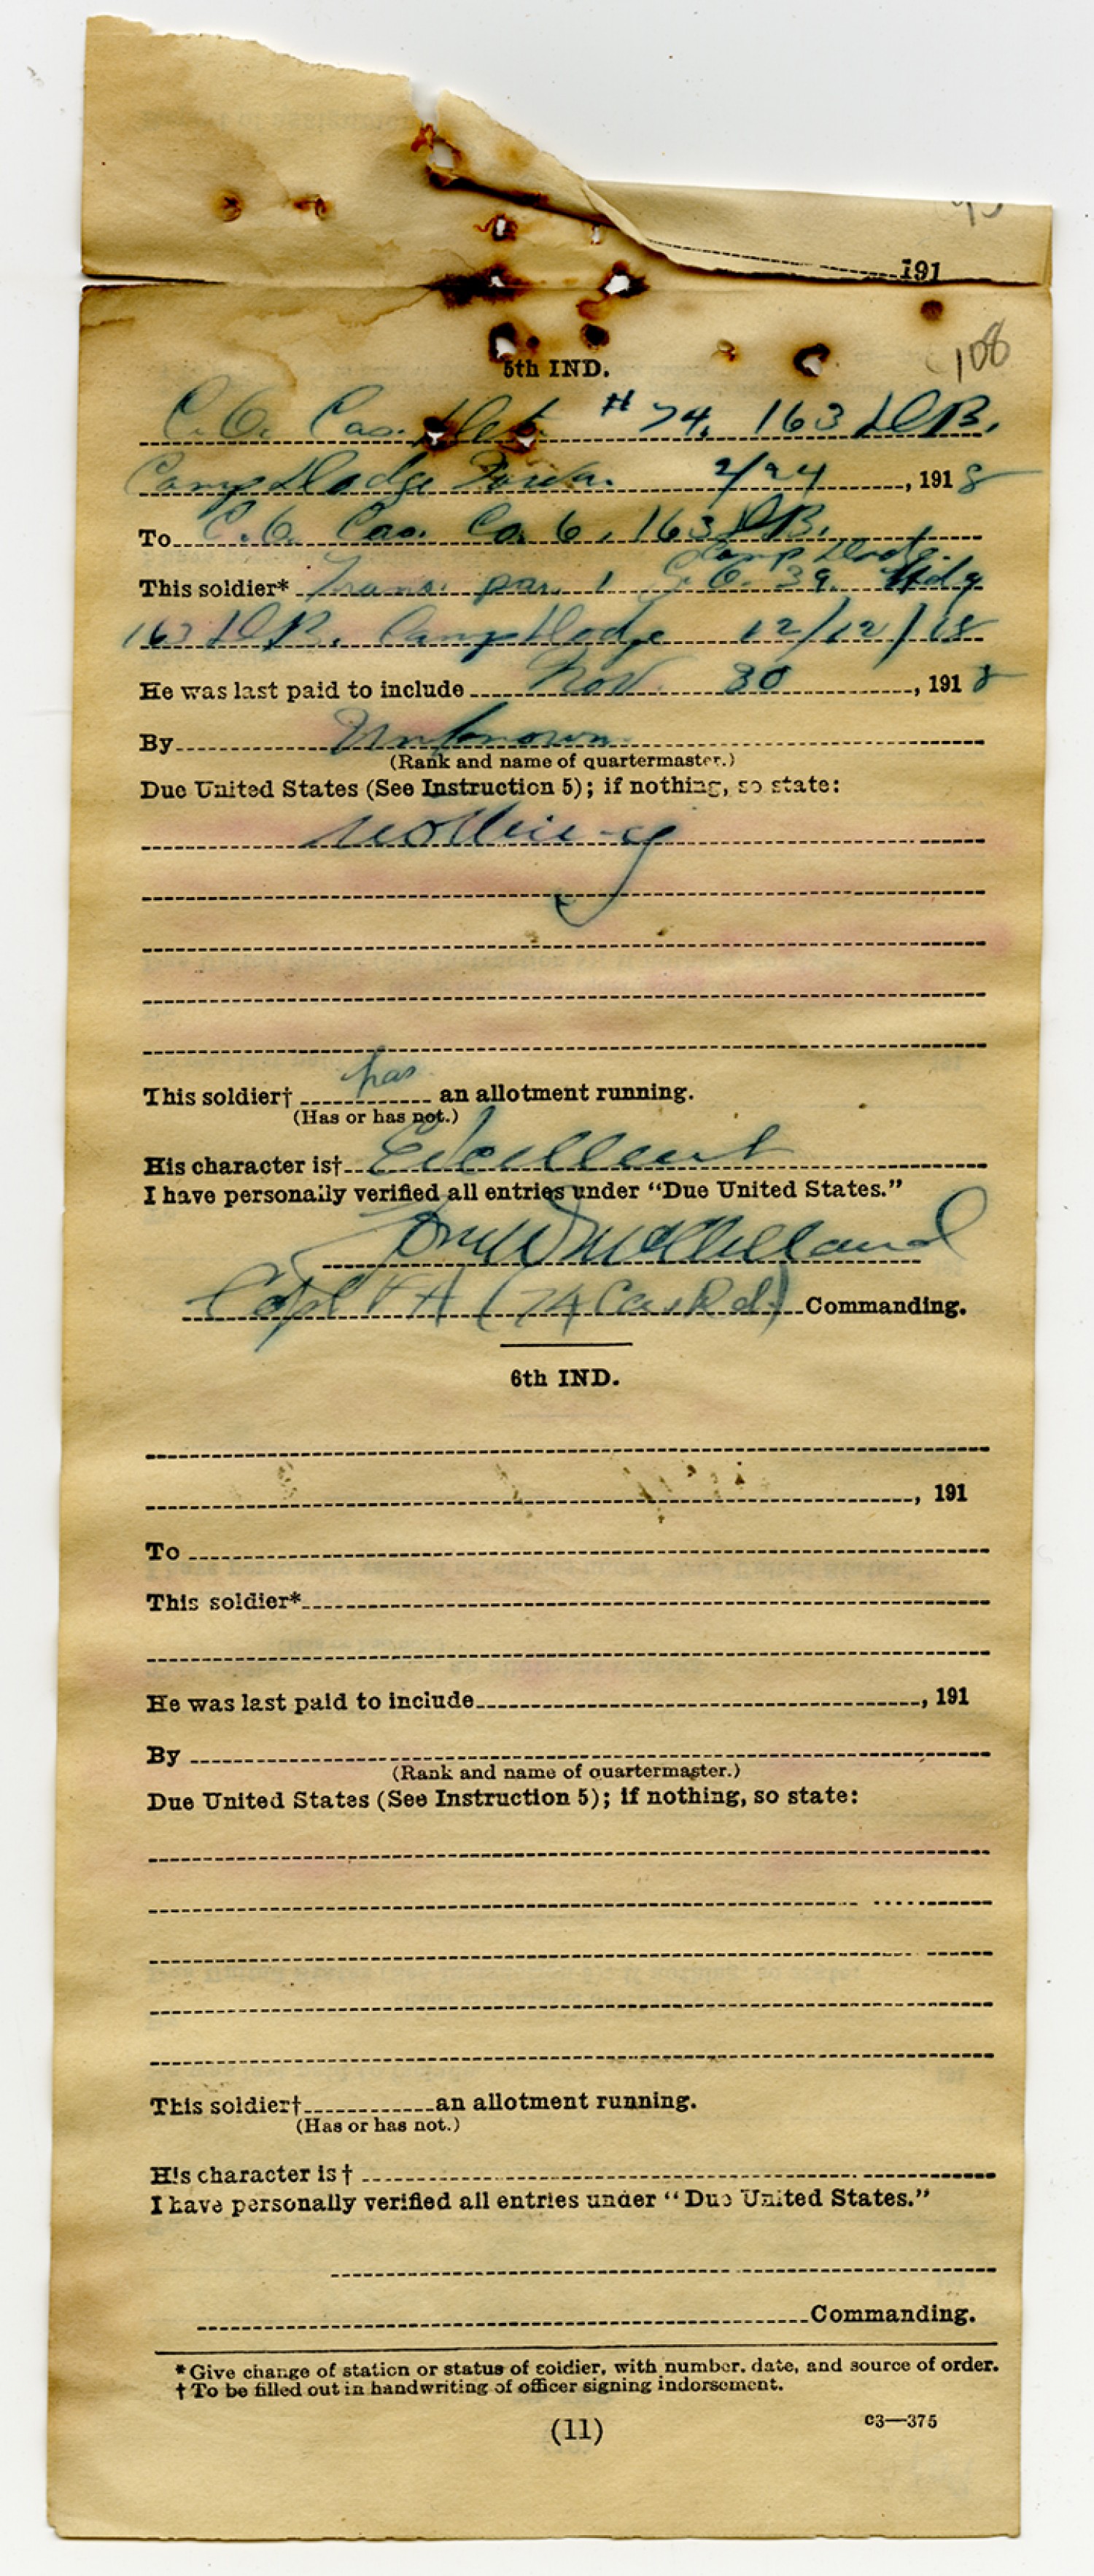 191
108
5th IND.
C.O. Cas. Det # 74, 163 D.B.
Camp Dodge Iowa. 2/24, 1918
To C.O. Cas. Co. 6, 163 D.B.
Camp Dodge.
This soldier* Trans. par. 1 S.O. 39. Hdq
163 D.B. Camp Dodge 12/12/18
He was last paid to include Nov. 30, 1918
By Unknown
(Rank and name of quartermaster.)
Due United States (See Instruction 5); if nothing, so state:
nothing
This soldier† has an allotment running.
(Has or has not.)
His character is† Excellent
I have personally verified all entries under “Due United States.”
McClelland
Capt FA (74 Cas. Det.) Commanding.
6th IND.
, 191
To
This soldier*
He was last paid to include, 191
By
(Rank and name of quartermaster.)
Due United States (See Instruction 5); if nothing, so state:
This soldier† an allotment running.
(Has or has not.)
His character is †
I have personally verified all entries under “Due United States.”
Commanding.
* Give change of station or status of soldier, with number, date, and source of order.
† To be filled out in handwriting of officer signing indorsement.
(11)
C3—375